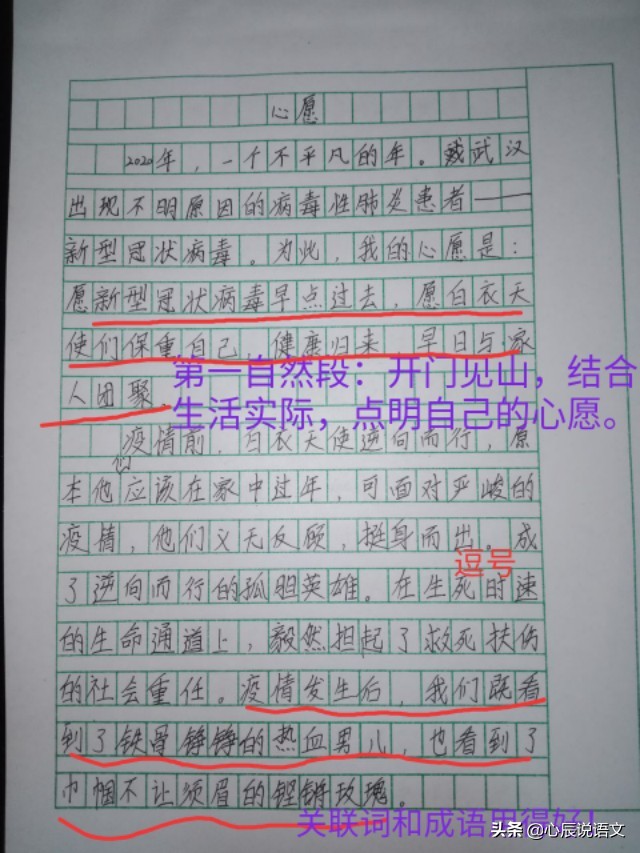 心愿
2020年，一个不平凡的年。武汉
出现不明原因的病毒性肺炎患者——
新型冠状病毒。为此，我的心愿是：
愿新型冠状病毒早点过去，愿白衣天
使们保重自己，健康归来 早日与家
人团聚
第一自然段：开门见山，结合
生活实际，点明自己的心愿。
疫情前，白衣天使逆向而行，原
本他们应该在家中过年，可面对严峻的
疫情，他们义无反顾，挺身而出。成
逗号
了逆向而行的孤胆英雄。在生死时速
的生命通道上，毅然担起了救死扶伤
的社会重任。疫情发生后，我们既看
到了铁骨铮铮的热血男儿，也看到了
巾帼不让须眉的铿锵玫瑰。
关联词和成语用得好！
头条@心辰说语文